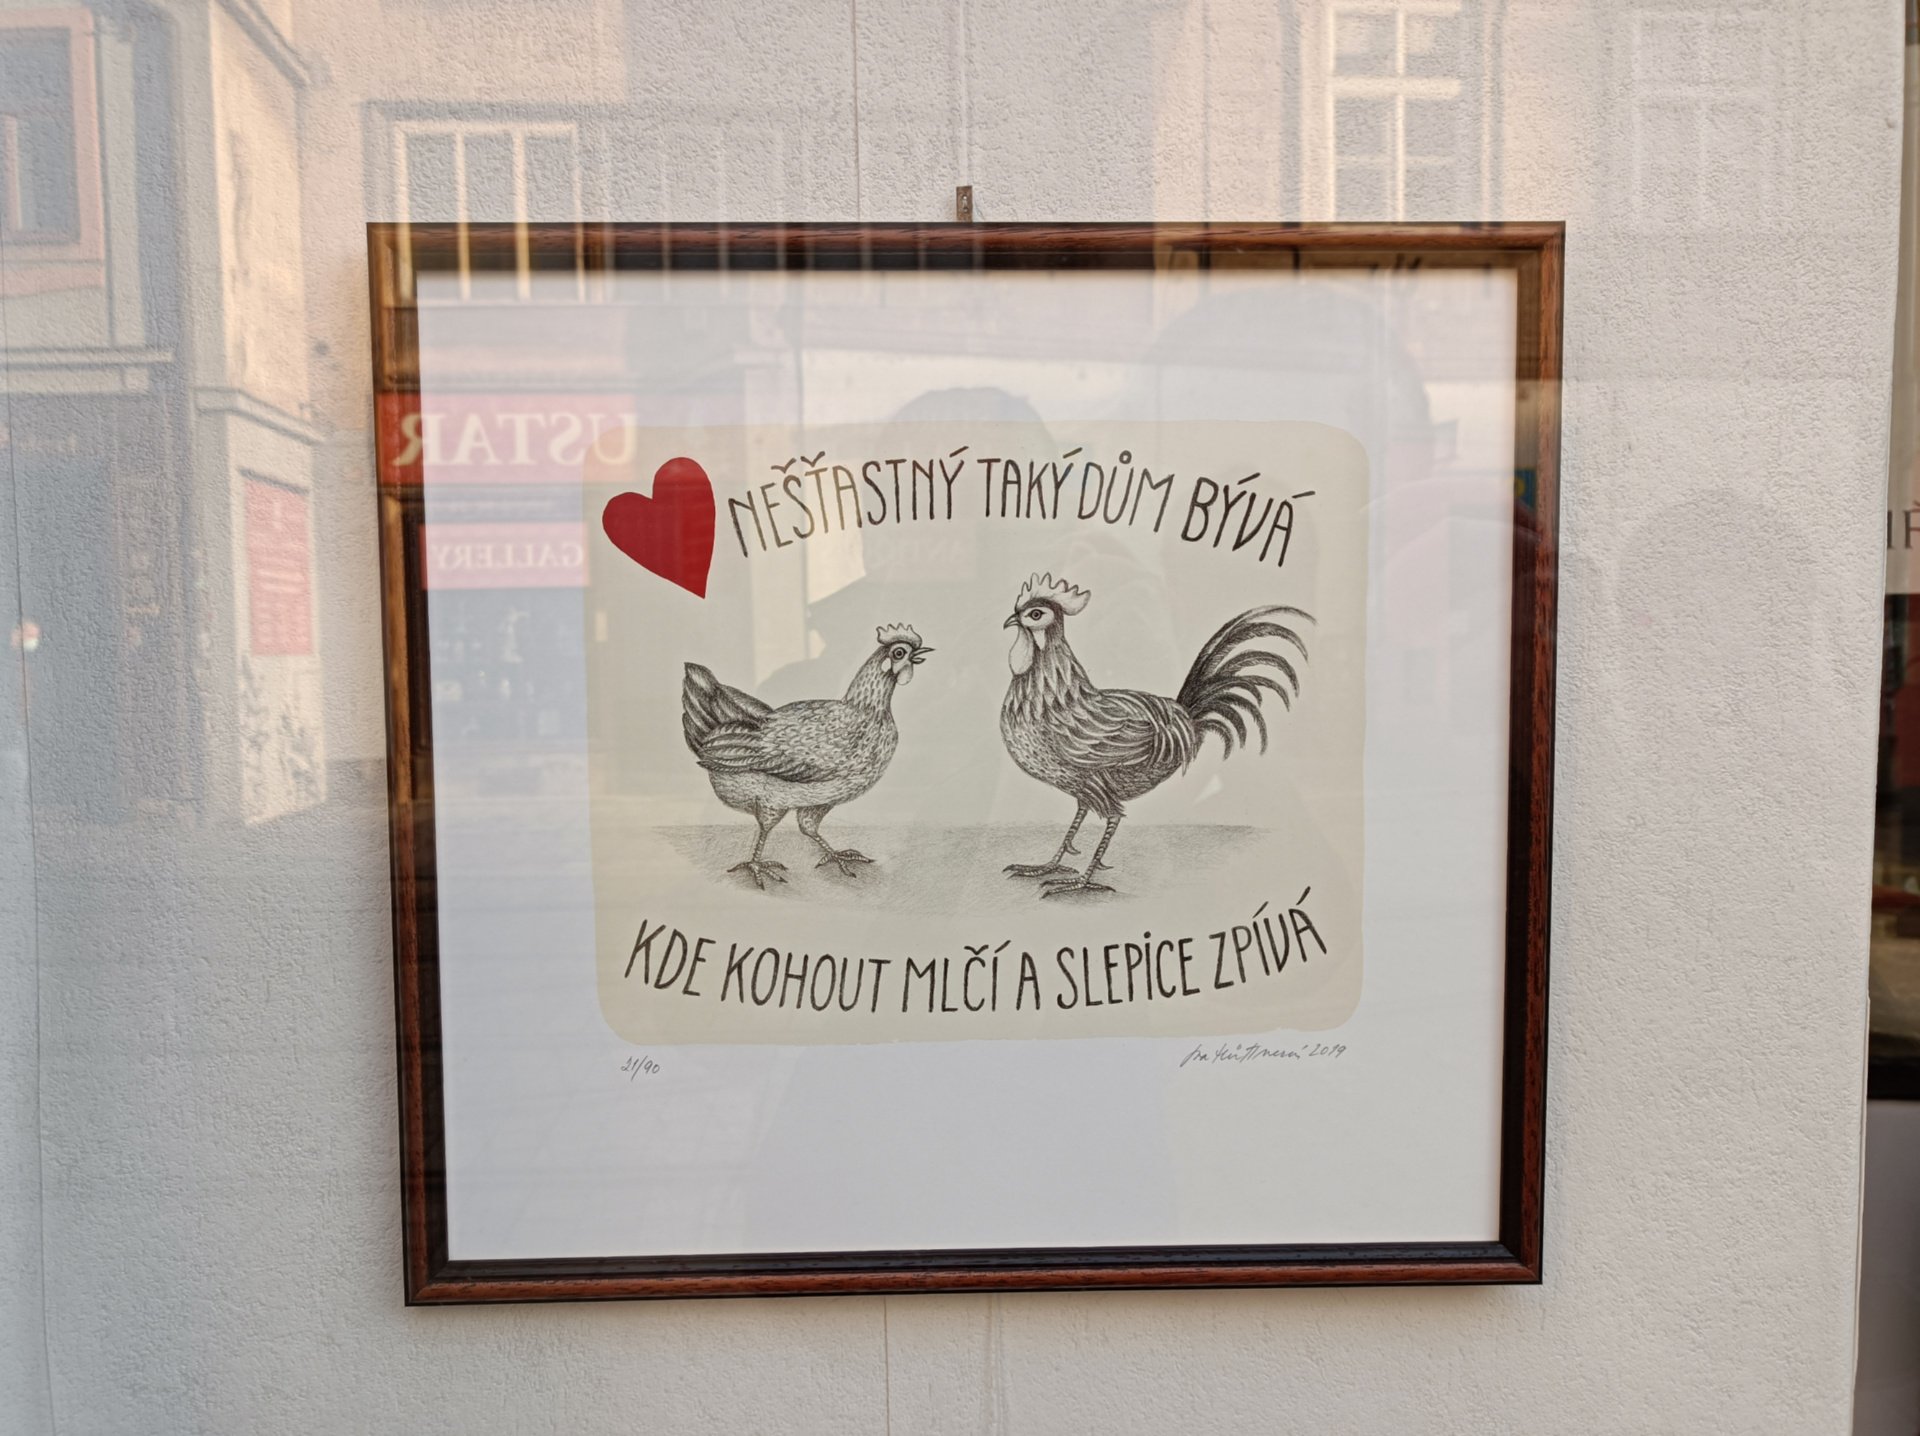 NEŠŤASTNÝ TAKÝ DŮM BÝVÁ
KDE KOHOUT MLČÍ A SLEPICE ZPÍVÁ
21/90
Iva Hüttnerová 2019
USTAR
GALLERY